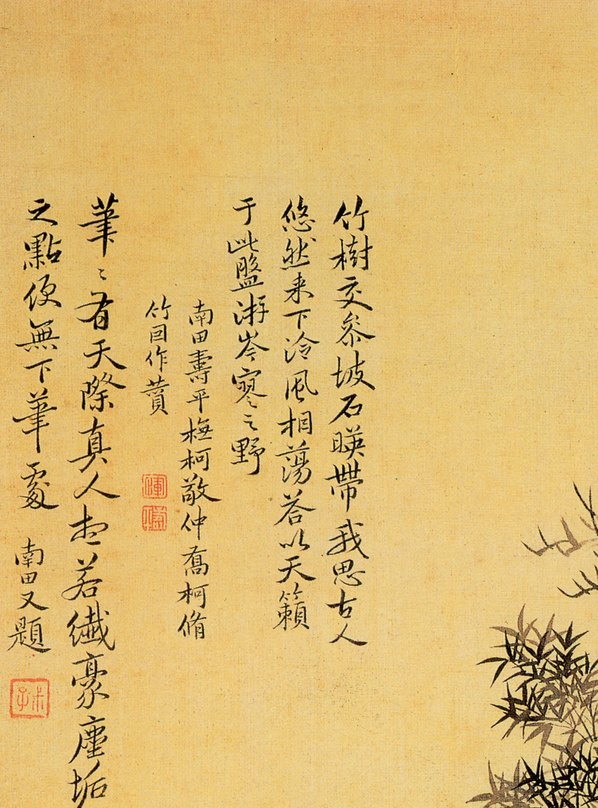 竹樹交參坡石暎帶我思古人
悠然来下泠風相蕩答以天籟
于此盤游岑寥之野
南田壽平橅柯敬仲喬柯脩
竹因作贊
筆〻有天際真人想若纖豪塵垢
之點便無下筆處
南田又題